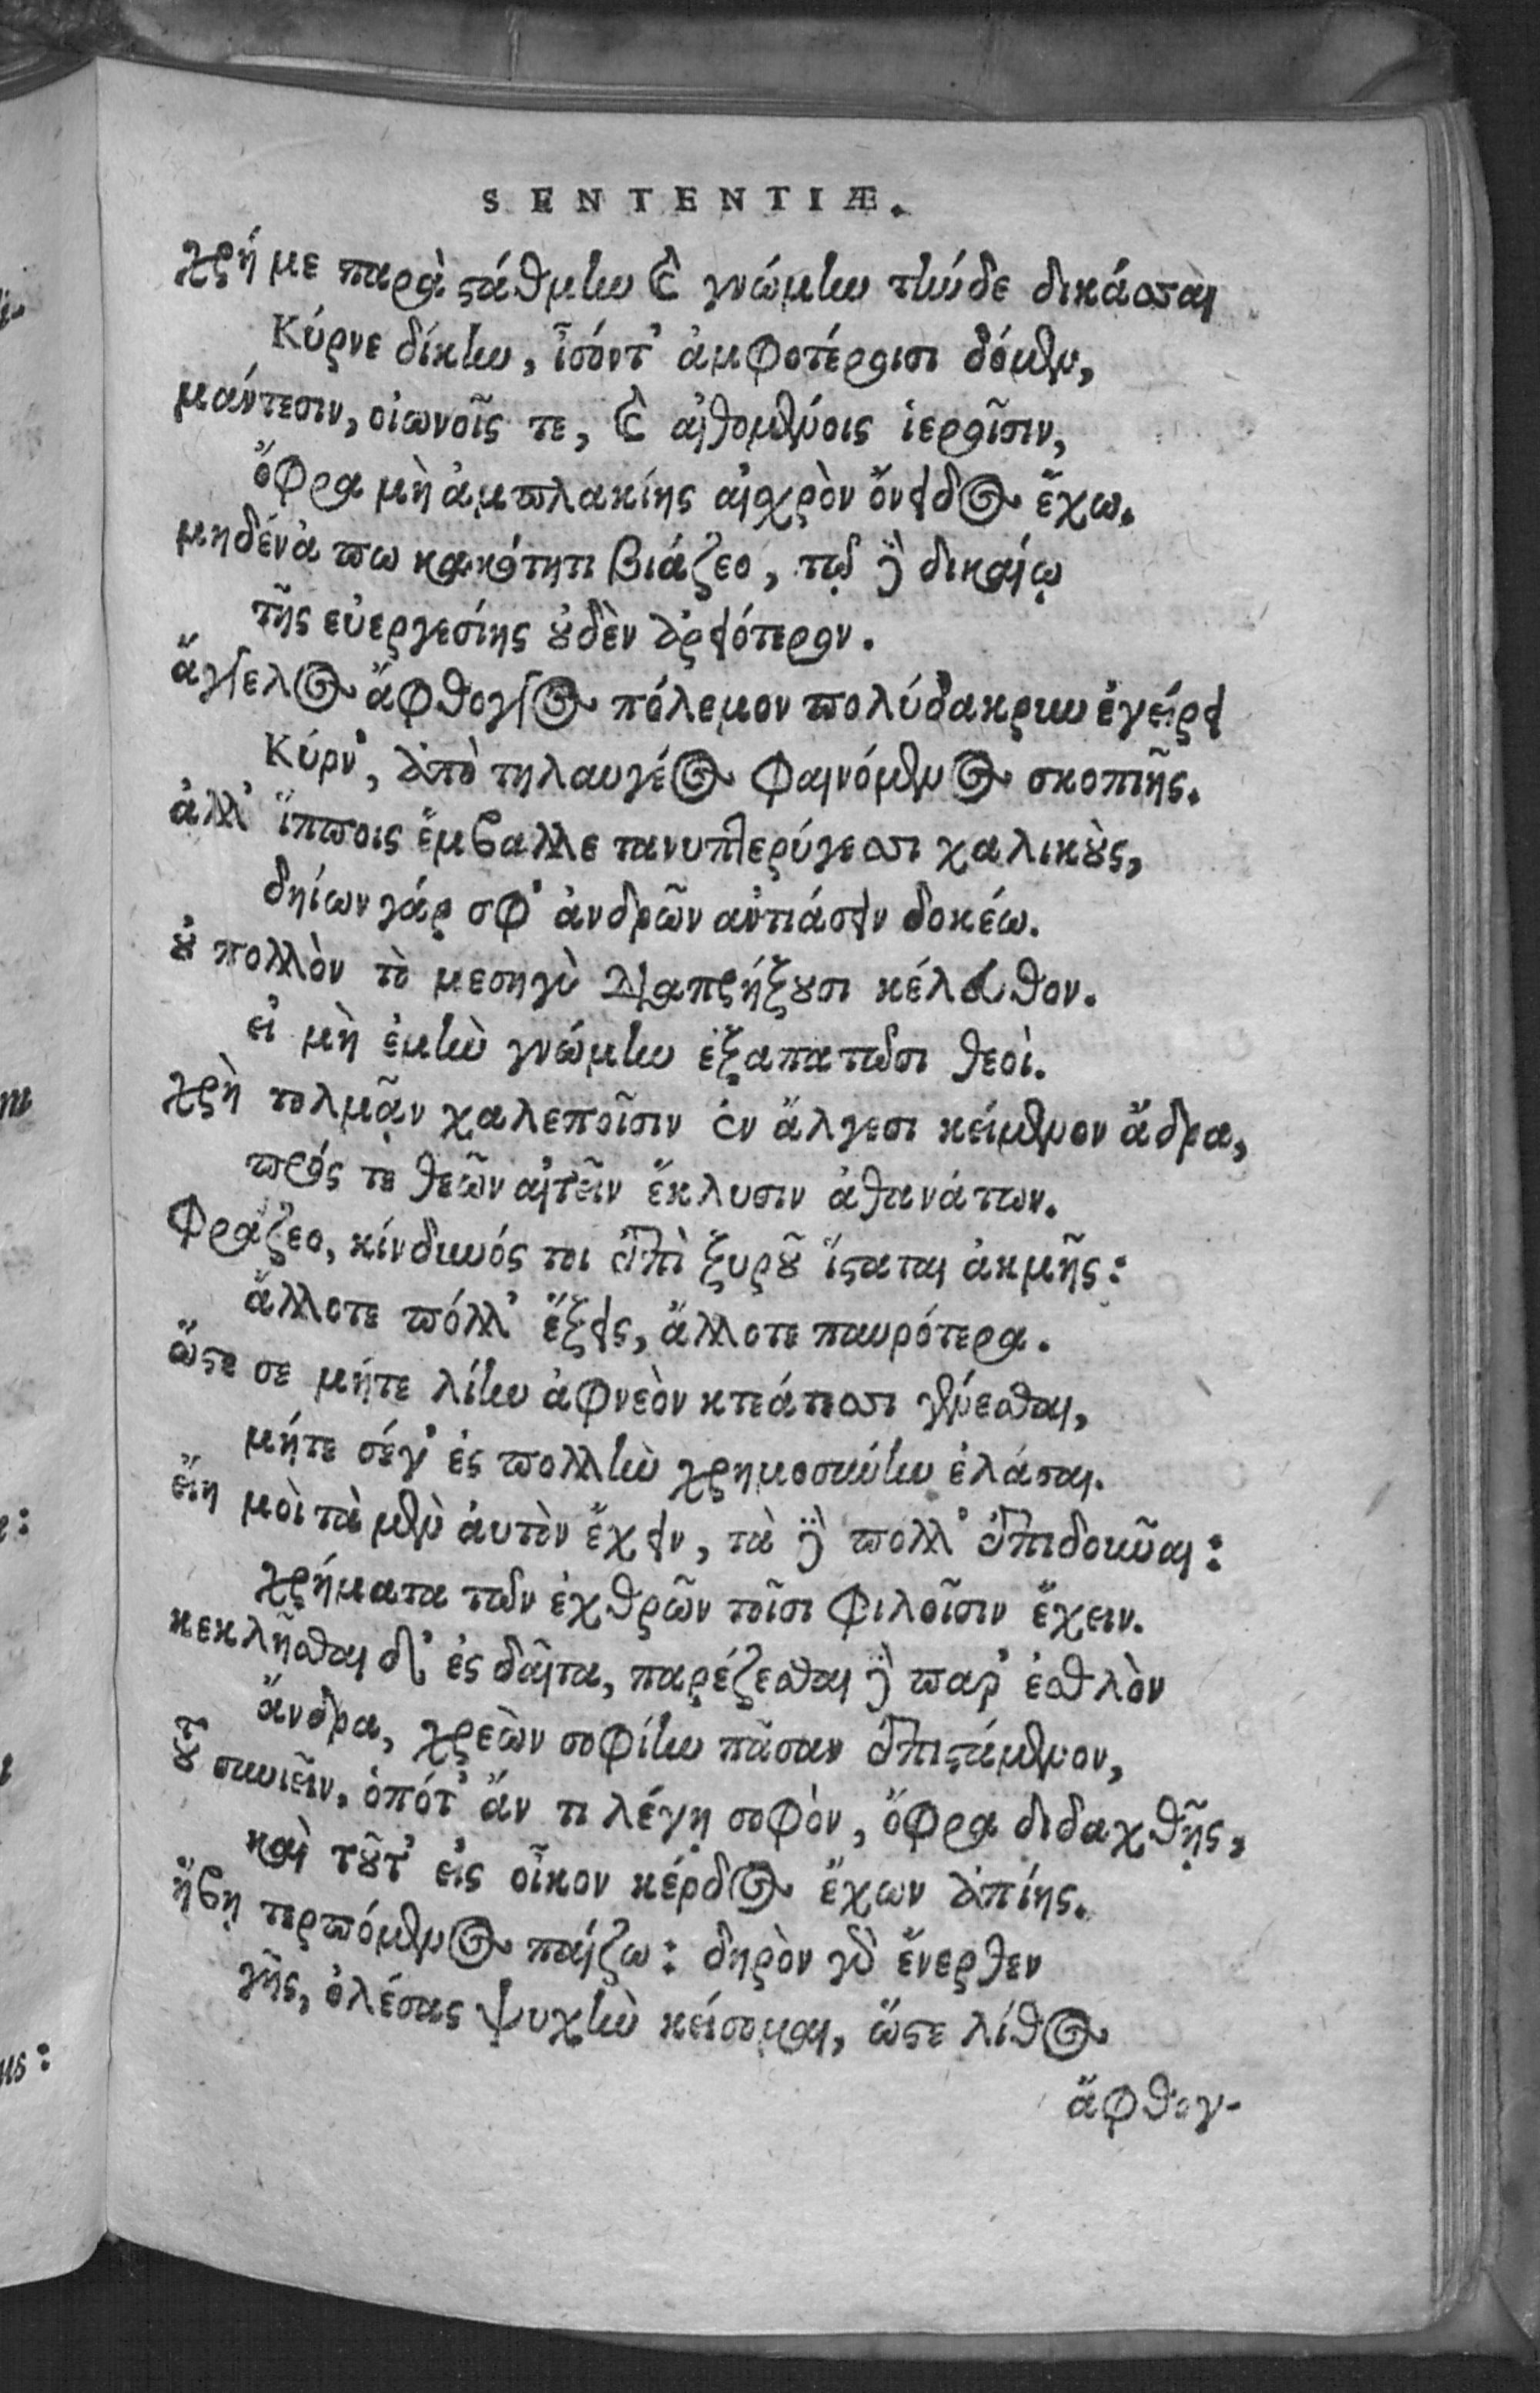 SENTENTIÆ.
χρή με παρὰ στάθμην καὶ γνώμην τήνδε δικάσσαι
Κύρνε δίκην, ἶσόντ' ἀμφοτέροισι δόμεν,
μάντεσιν, οἰωνοῖς τε, καὶ αἰθομένοις ἱεροῖσιν,
ὄφρα μὴ ἀμπλακίης αἰχρὸν ὄνειδος ἔχω.
μηδένά πω κακότητι βιάζεο, τῷ δὲ δικαίῳ
τῆς εὐεργεσίης οὐδὲν ἀρειότερον.
ἄγγελος ἄφθογγος πόλεμον πολύδακρυν ἐγείρει
Κύρν', ἀπὸ τηλαυγέος φαινόμενος σκοπιῆς.
ἀλλ' ἵπποις ἔμβαλλε τανυπτερύγεσσι χαλικοὺς,
δηίων γάρ σφ' ἀνδρῶν ἀντιάσειν δοκέω.
οὐ πολλὸν τὸ μεσηγὺ διαπρήξουσι κέλευθον.
εἰ μὴ ἐμὴν γνώμην ἐξαπατῶσι θεοὶ.
χρὴ τολμᾷν χαλεποῖσιν ἐν ἄλγεσι κείμενον ἄδρα,
πρός τε θεῶν αἰτεῖν ἔκλυσιν ἀθανάτων.
Φράζεο, κίνδυνός τοι ἐπὶ ξυροῦ ἵσταται ἀκμῆς:
ἄλλοτε πόλλ' ἕξεις, ἄλλοτε παυρότερα.
ὥστε σε μήτε λίην ἀφνεὸν κτεάτεσσι γενέσθαι,
μήτε σέγ' ἐς πολλὴν χρημοσύνην ἐλάσαι.
εἴη μοὶ τὰ μὲν ἀυτὸν ἔχειν, τὰ δὲ πολλ' ἐπιδοῦναι:
χρήματα τῶν ἐχθρῶν τοῖσι φιλοῖσιν ἔχειν.
κεκλῆσθαι δ' ἐς δαῖτα, παρέζεσθαι δὲ παρ' ἐσθλὸν
ἄνδρα, χρεὼν σοφίην πᾶσαν ἐπιστάμενον,
τοῦ συνιεῖν, ὁπότ' ἄν τι λέγῃ σοφὸν, ὄφρα διδαχθῇς,
καὶ τοῦτ' εἰς οἶκον κέρδος ἔχων ἀπίῃς.
ἥβῃ τερπόμενος παίζω: δηρὸν γὰρ ἔνερθεν
γῆς, ὀλέσας ψυχὴν κείσομαι, ὥστε λίθος
ἄφθογ-